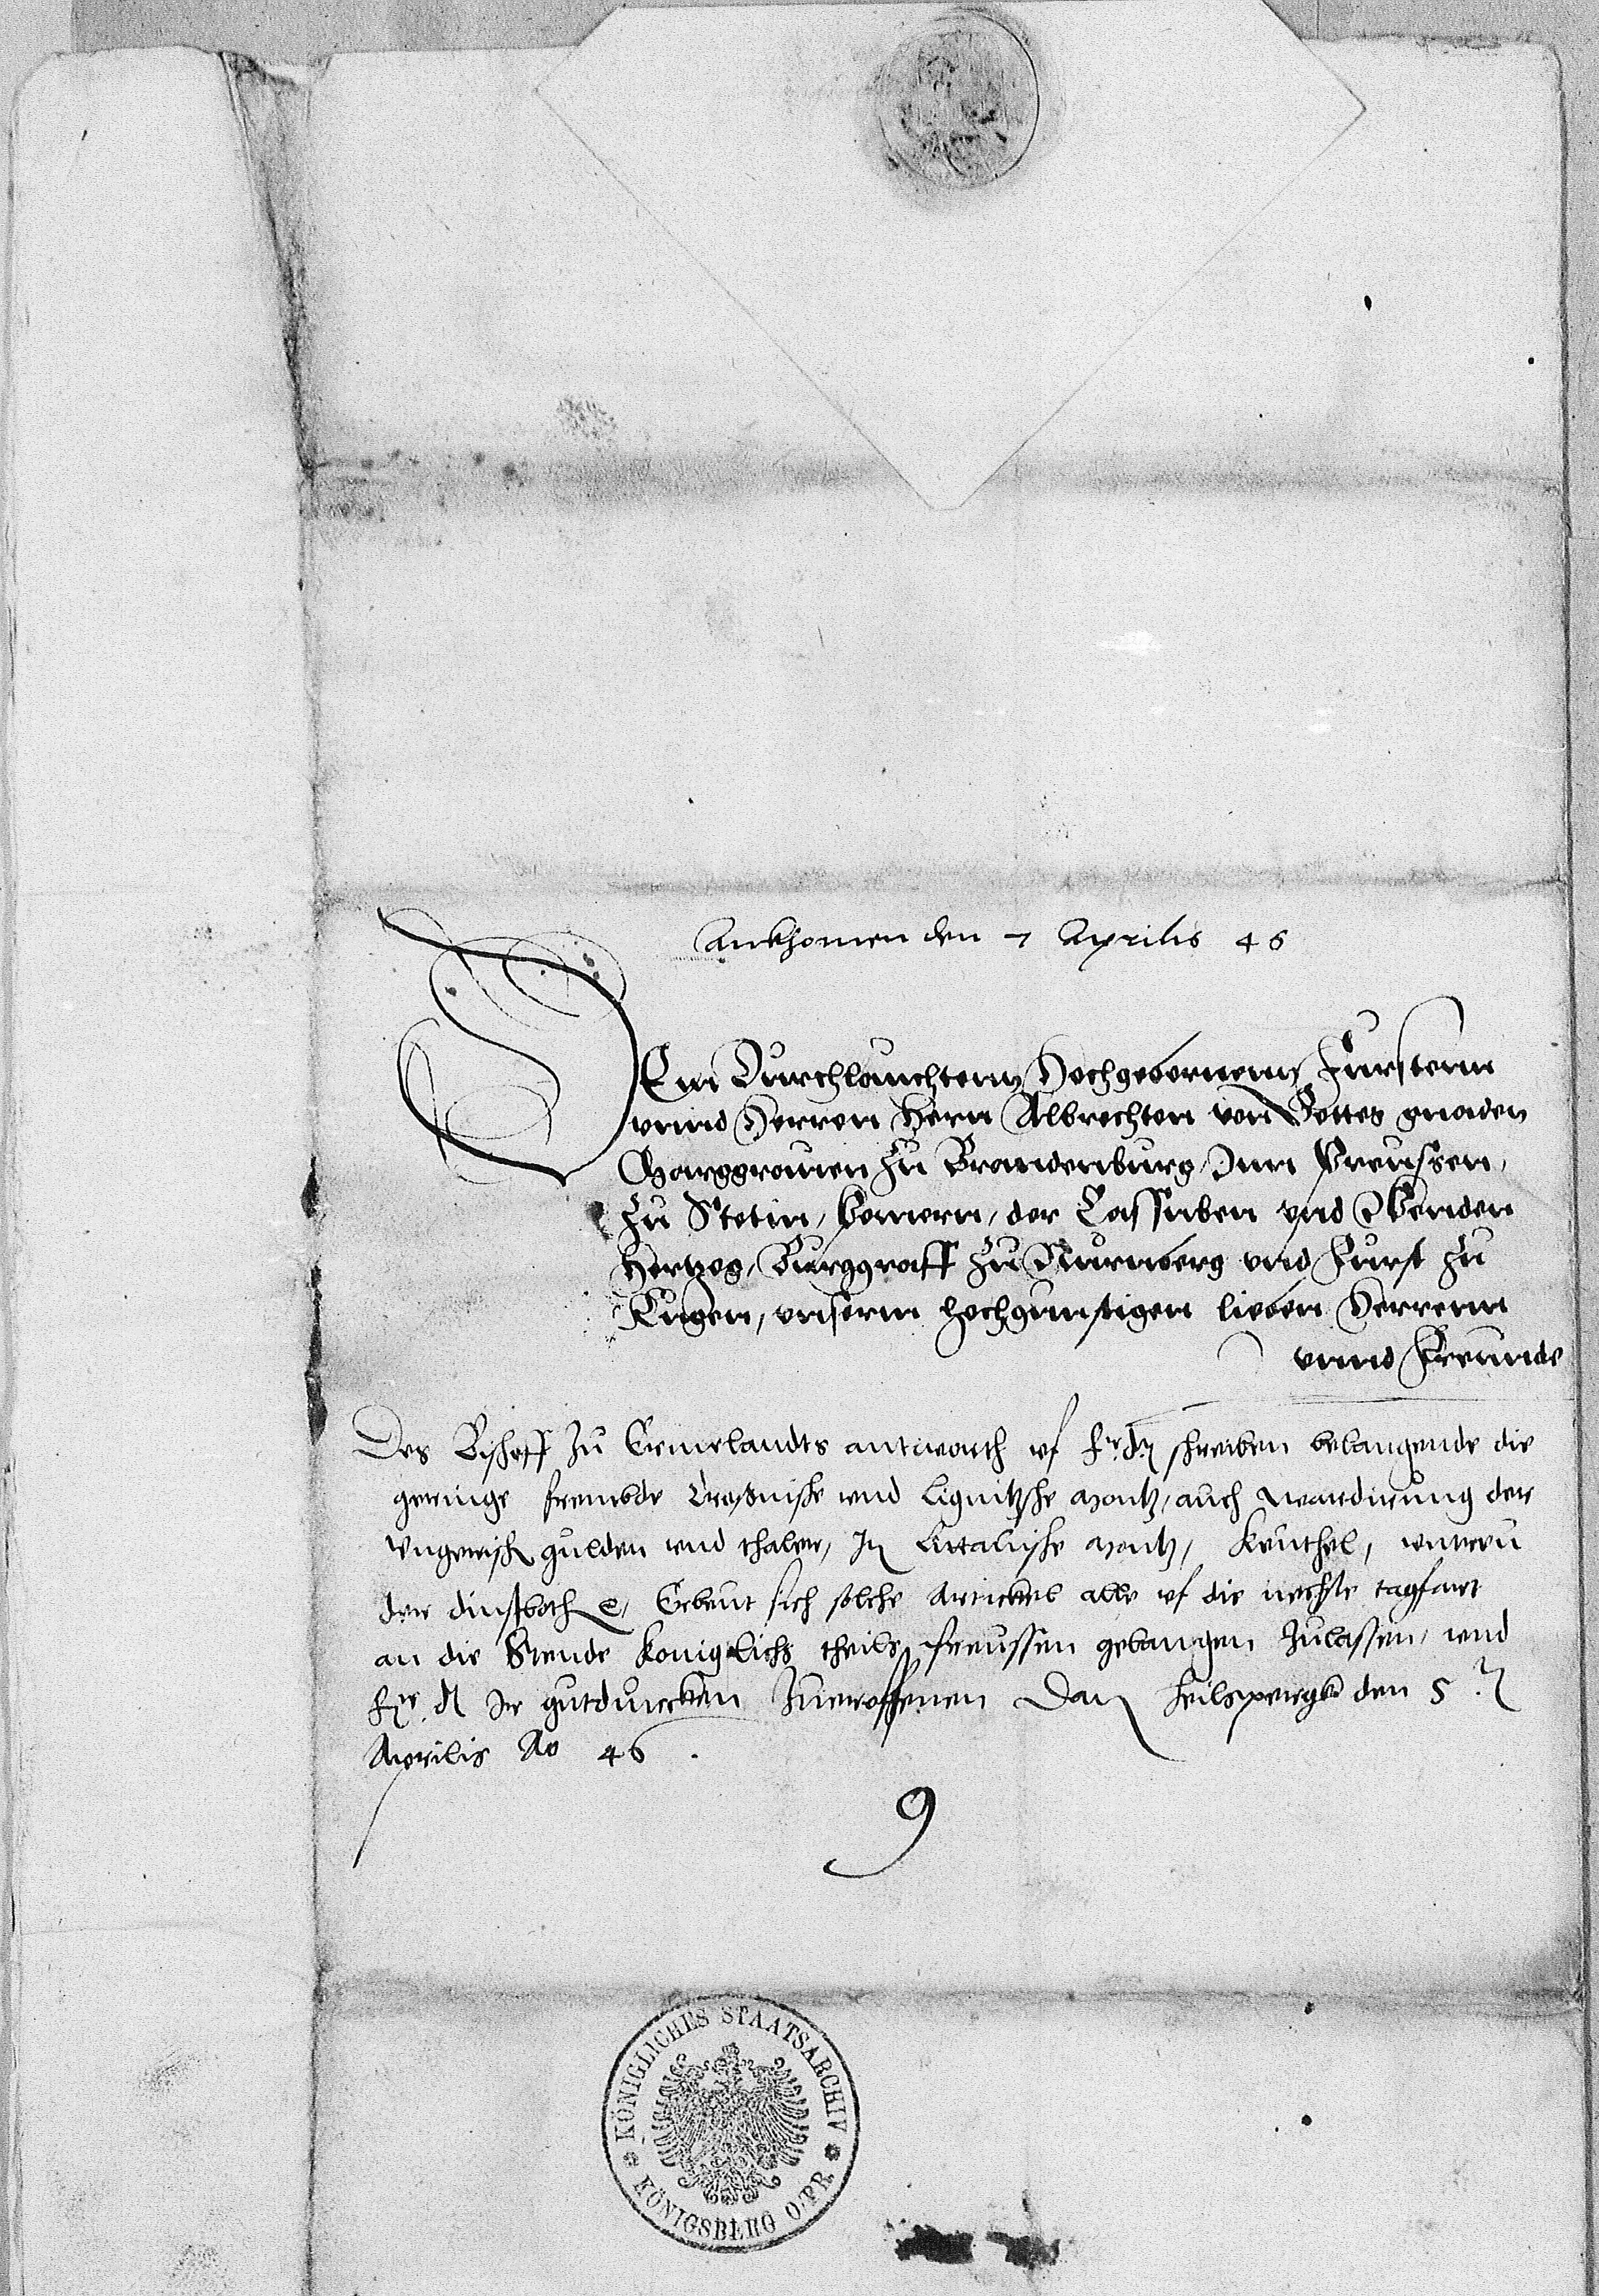 Ankhomen den 7 Aprilis 46
Dem Durchlauchtenn Hochgebornenn Furstenn
vnnd Herren Hern Albrechten von Gottes gnaden
Marggrauen zu Brandenburg, Inn Preussen,
zu Stetin, Pomern, der Cassuben vnd Wenden
Hertzog, Burggraff zu Nurmberg vnd Furst zu
Rugen, vnserm hochgunstigen lieben Herrenn
vnnd Freunde
Des Bischoff zu Ermelandts antworth vf fr. dt. schreiben belangende die
geringe frembde Croßnische vnd Lignitzsche Montz, auch wardirung der
Vngerisch gulden vnd thaler, In Littawische Montz,
der dinstboth etc. Erbeut sich solche Artickel alle vf die nechste tagfart
an die Stende koniglichs theils preussen gelangen zulassen, vnd
fr. dt. Ir gutduncken zueroffenen Dat Heilspergk den 5
Aprilis Ao 46.
9
KÖNIGLICHES STAATSARCHIV
KÖNIGSBERG O/PR.